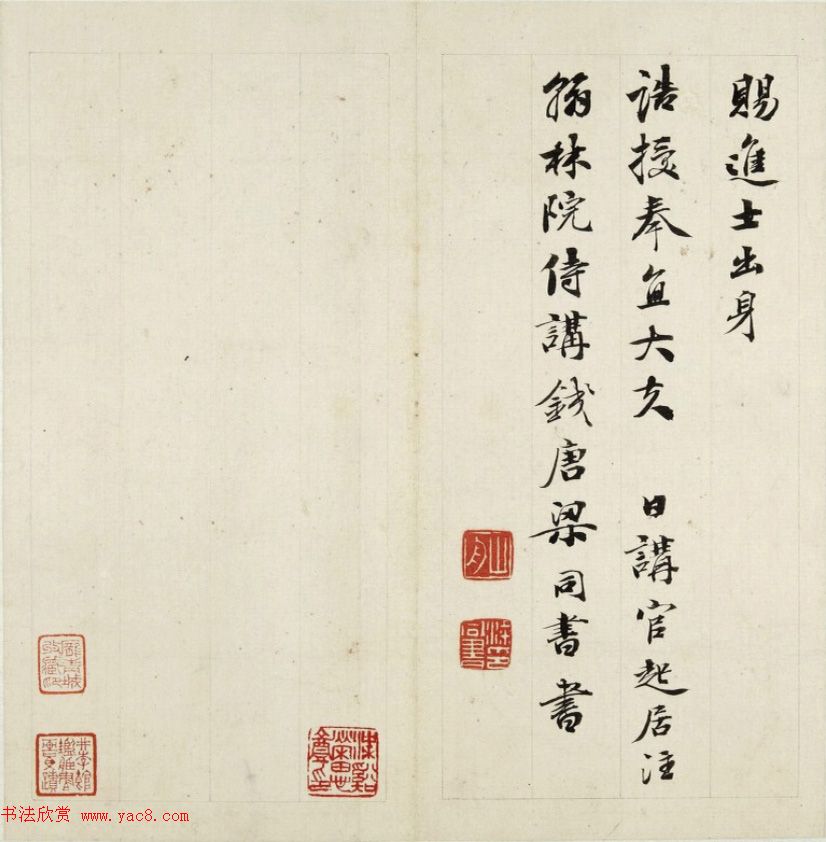 賜進士出身
誥授奉直大夫 日講官起居注
翰林院侍講錢唐梁同書書
山舟
梁同書印
書法欣賞 www.yac8.com